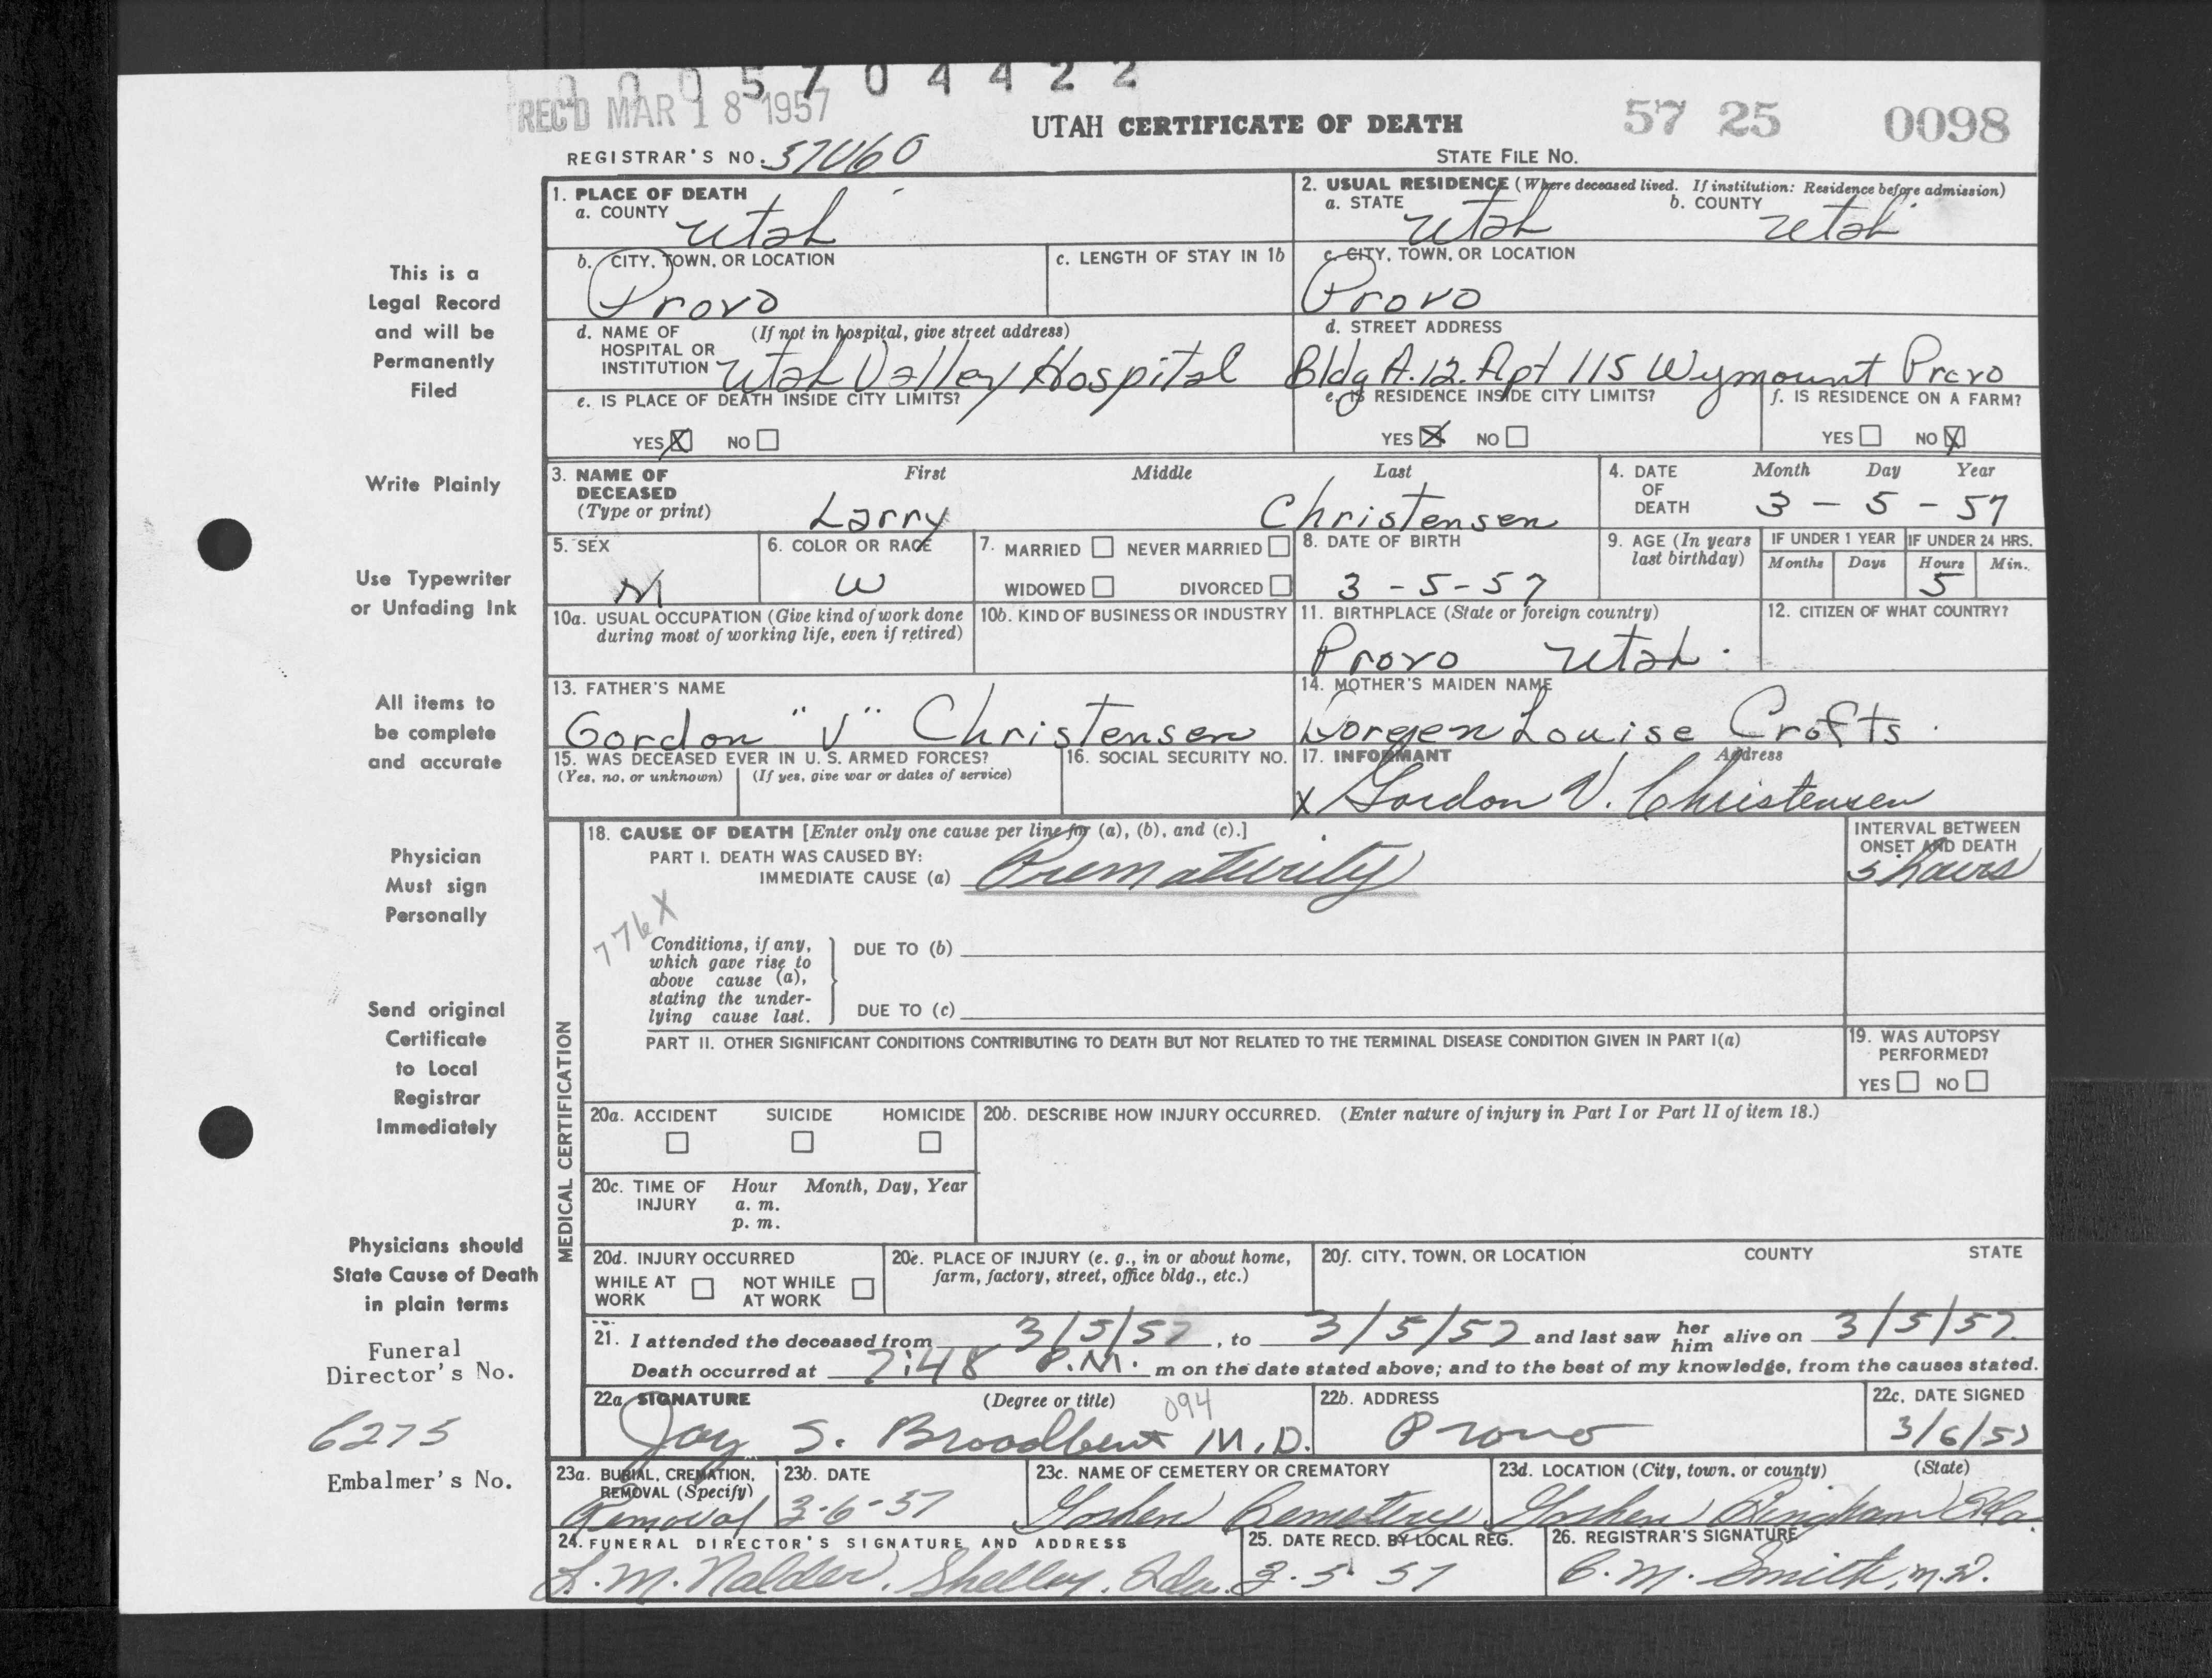 0 0 0 5 7 0 4 4 2 2
REC'D MAR 18 1957
UTAH CERTIFICATE OF DEATH
57 25 0098
REGISTRAR'S NO. 57060
STATE FILE NO.
This is a
Legal Record
and will be
Permanently
Filed
Write Plainly
Use Typewriter
or Unfading Ink
All items to
be complete
and accurate
Physician
Must sign
Personally
Send original
Certificate
to Local
Registrar
Immediately
Physicians should
State Cause of Death
in plain terms
Funeral
Director's No.
6275
Embalmer's No.
1. PLACE OF DEATH
a. COUNTY
Utah
2. USUAL RESIDENCE (Where deceased lived. If institution: Residence before admission)
a. STATE b. COUNTY
Utah Utah
b. CITY, TOWN, OR LOCATION
Provo
c. LENGTH OF STAY IN 1b
c. CITY, TOWN, OR LOCATION
Provo
d. NAME OF (If not in hospital, give street address)
HOSPITAL OR
INSTITUTION Utah Valley Hospital
d. STREET ADDRESS
Bldg A.12. Apt 115 Wymount Provo
e. IS PLACE OF DEATH INSIDE CITY LIMITS?
YES X NO
e. IS RESIDENCE INSIDE CITY LIMITS?
YES X NO
f. IS RESIDENCE ON A FARM?
YES NO X
3. NAME OF DECEASED (Type or print)
First Middle Last
Larry Christensen
4. DATE OF DEATH
Month Day Year
3 - 5 - 57
5. SEX
M
6. COLOR OR RACE
W
7. MARRIED NEVER MARRIED
WIDOWED DIVORCED
8. DATE OF BIRTH
3 - 5 - 57
9. AGE (In years last birthday)
IF UNDER 1 YEAR IF UNDER 24 HRS.
Months Days Hours Min.
5
10a. USUAL OCCUPATION (Give kind of work done
during most of working life, even if retired)
10b. KIND OF BUSINESS OR INDUSTRY
11. BIRTHPLACE (State or foreign country)
Provo Utah.
12. CITIZEN OF WHAT COUNTRY?
13. FATHER'S NAME
Gordon "V" Christensen
14. MOTHER'S MAIDEN NAME
Louise Crofts
15. WAS DECEASED EVER IN U. S. ARMED FORCES?
(Yes, no, or unknown) (If yes, give war or dates of service)
16. SOCIAL SECURITY NO.
17. INFORMANT Address
X Gordon V. Christensen
MEDICAL CERTIFICATION
18. CAUSE OF DEATH [Enter only one cause per line for (a), (b), and (c).]
PART I. DEATH WAS CAUSED BY:
IMMEDIATE CAUSE (a) Prematurity
INTERVAL BETWEEN
ONSET AND DEATH
5 hours
776X
Conditions, if any,
which gave rise to
above cause (a),
stating the under-
lying cause last.
DUE TO (b)
DUE TO (c)
PART II. OTHER SIGNIFICANT CONDITIONS CONTRIBUTING TO DEATH BUT NOT RELATED TO THE TERMINAL DISEASE CONDITION GIVEN IN PART I(a)
19. WAS AUTOPSY
PERFORMED?
YES NO
20a. ACCIDENT SUICIDE HOMICIDE
20b. DESCRIBE HOW INJURY OCCURRED. (Enter nature of injury in Part I or Part II of item 18.)
20c. TIME OF INJURY
Hour Month, Day, Year
a. m.
p. m.
20d. INJURY OCCURRED
WHILE AT WORK NOT WHILE AT WORK
20e. PLACE OF INJURY (e. g., in or about home,
farm, factory, street, office bldg., etc.)
20f. CITY, TOWN, OR LOCATION COUNTY STATE
21. I attended the deceased from 3/5/57, to 3/5/57 and last saw her him alive on 3/5/57.
Death occurred at 7:48 P.M. m on the date stated above; and to the best of my knowledge, from the causes stated.
22a. SIGNATURE (Degree or title) 094
Jay S. Broadbent M.D.
22b. ADDRESS
Provo
22c. DATE SIGNED
3/6/57
23a. BURIAL, CREMATION,
REMOVAL (Specify)
Removal
23b. DATE
3-6-57
23c. NAME OF CEMETERY OR CREMATORY
Goshen Cemetery
23d. LOCATION (City, town, or county) (State)
Goshen Bingham Ida.
24. FUNERAL DIRECTOR'S SIGNATURE AND ADDRESS
L. M. Nalder, Shelley, Ida.
25. DATE RECD. BY LOCAL REG.
3-5 57
26. REGISTRAR'S SIGNATURE
C. M. Smith, M.D.